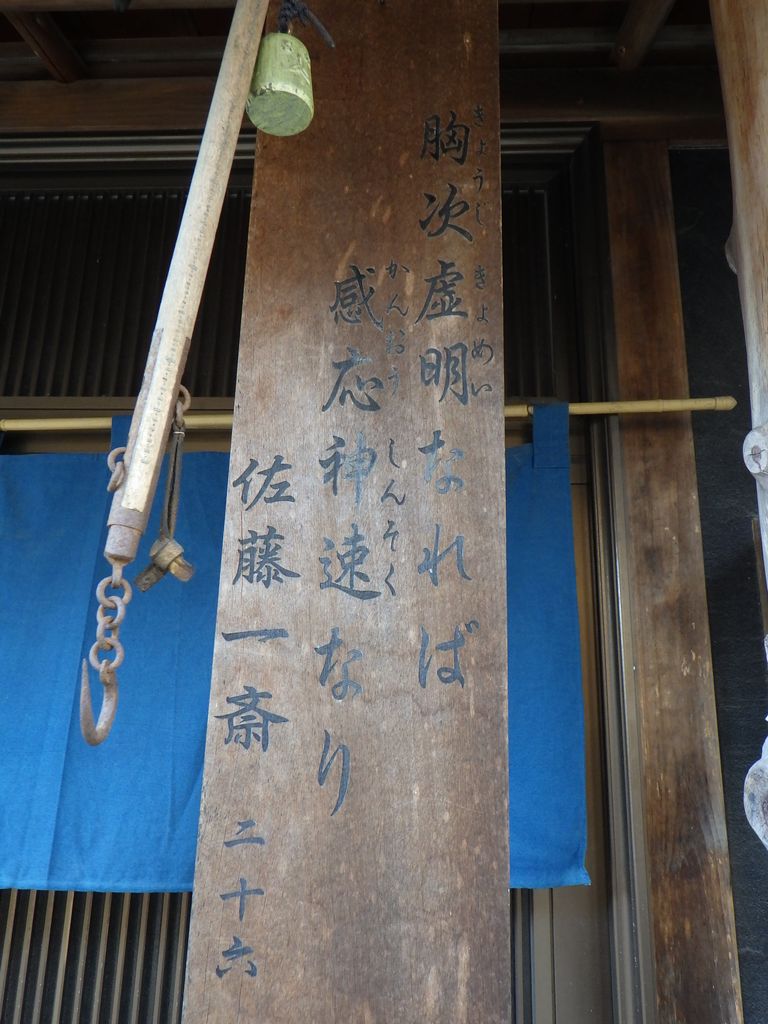 胸次虚明なれば
きょうじ きょめい
感応神速なり
かんおう しんそく
佐藤一斎 二十六